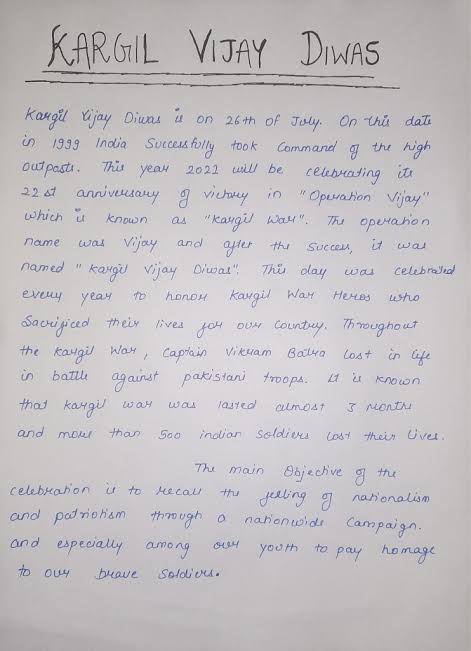 KARGIL VIJAY DIWAS
Kargil Vijay Diwas is on 26th of July. On this date
in 1999 India Successfully took Command of the high
outposts. This year 2022 will be celebrating its
22st anniversary of victory in "Operation Vijay"
which is known as "Kargil War". The operation
name was Vijay and after the Success, it was
named "Kargil Vijay Diwas". This day was celebrated
every year to honor Kargil War Heros who
Sacrificed their lives for our Country. Throughout
the Kargil War, Captain Vikram Batra lost in life
in battle against pakistani troops. It is known
that kargil war was lasted almost 3 Months
and more than 500 indian Soldiers lost their lives.
The main Objective of the
celebration is to recall the felling of nationalism
and patriotism through a nationwide Campaign.
and especially among our youth to pay homage
to our brave Soldiers.